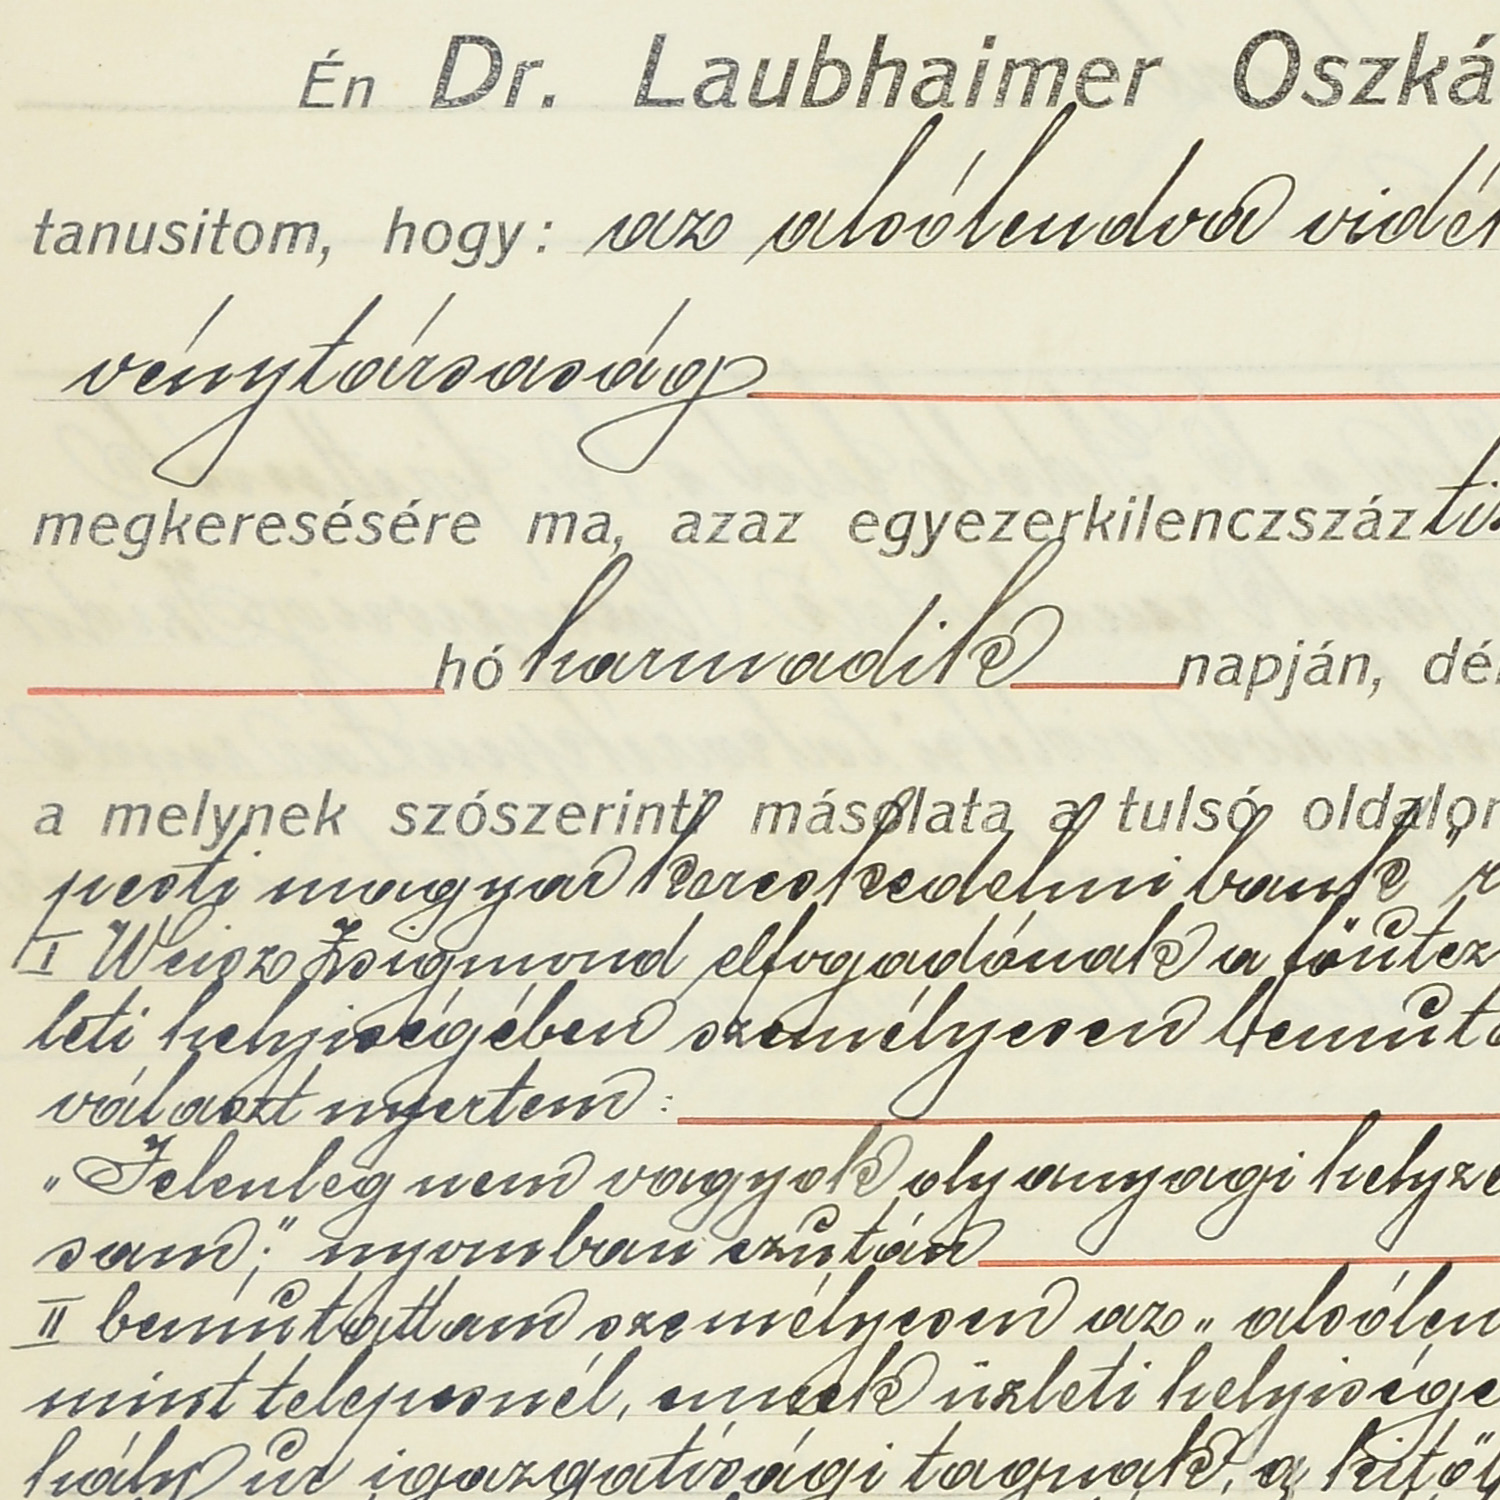 Én Dr. Laubhaimer Oszká
tanusitom, hogy: az alsólendva vidé
vénytársaság
megkeresésére ma, azaz egyezerkilenczszáz ti
hó harmadik napján, dél
a melynek szószerinti másolata a tulsó oldalon
pesti magyar kereskedelmi bank" r
I Weisz Zsigmond elfogadónak a főutez
leti helyiségében személyesen bemuta
választ nyertem:
"Jelenleg nem vagyok oly anyagi helyze
sam;" nyomban ezután
II bemutattam személyesen az "alsólen
mint telepesnél, ennek üzleti helyisége
hály ur igazgatósági tagnak, a kitől